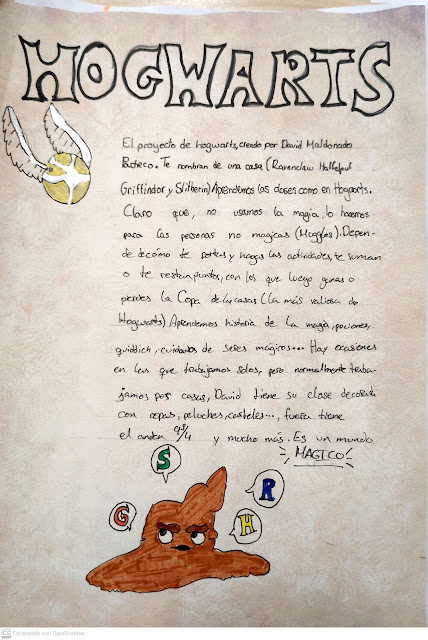 HOGWARTS
El proyecto de hogwarts, creado por David Maldonado
Pacheco. Te nombran de una casa (Ravenclaw Haffelpuf
Griffindor y Slitherin) Aprendemos las clases como en Hogwarts.
Claro que, no usamos la magia, lo hacemos
para las personas no magicas (Muggles). Depen-
de de cómo te portes y hagas las actividades, te suman
o te restan puntos, con los que luego ganas o
pierdes la Copa de las casas (La más valiosa de
Hogwarts) Aprendemos historia de la magia, pociones,
quiddich, cuidados de seres mágicos... Hay ocasiones
en las que trabajamos solos, pero normalmente traba-
jamos por casas, David tiene su clase decorada
con capas, peluches, carteles..., fuera tiene
el anden 9 3/4 y mucho más. Es un mundo
¡MAGICO!
S
R
G
H
CS Escaneado con CamScanner